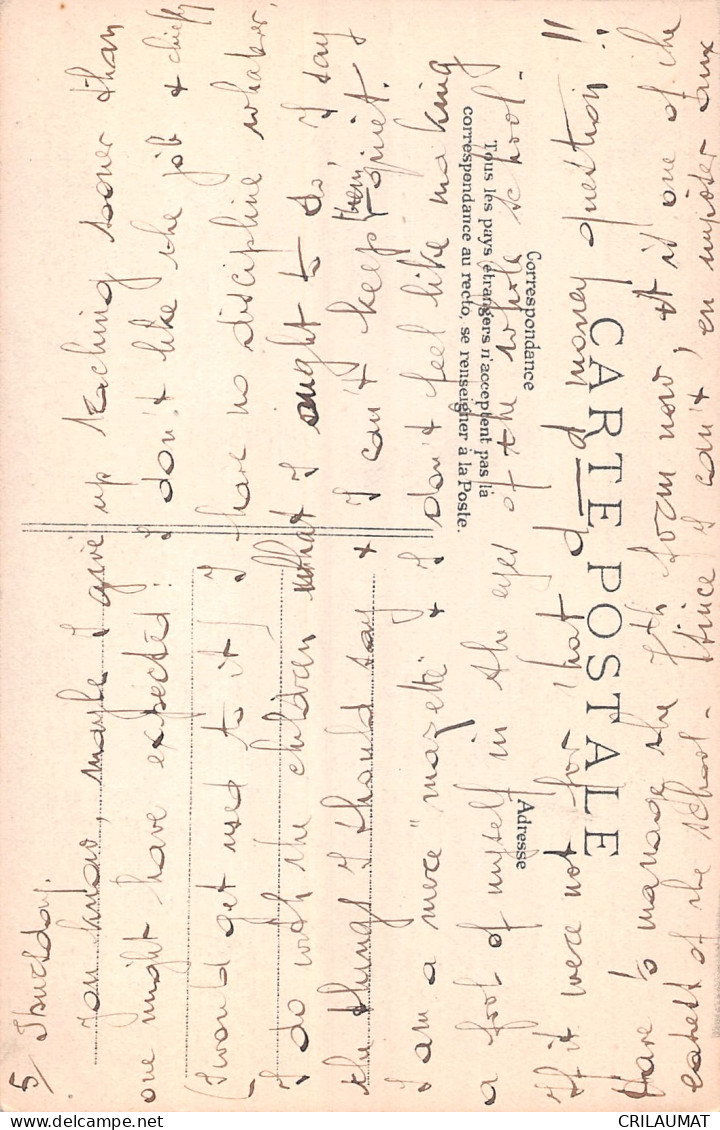 5/ Thursday.
You know, maybe I give up teaching sooner than
one might have expected! I don't like the job & chiefly
(I would get used to it) I have no discipline whatever.
I do with the children what I ought to do, I say
the things I should say & I can't keep them quiet.
I am a mere "mazette" & I don't feel like making
a fool of myself in the eyes of the whole school.
If it were not for that d—d money question!!
Have to manage the 7th form now, it is one of the
easiest of the school. Since I can't, en imposer aux
CARTE POSTALE
Correspondance
Tous les pays étrangers n'acceptent pas la
correspondance au recto, se renseigner à la Poste.
Adresse
CRILAUMAT